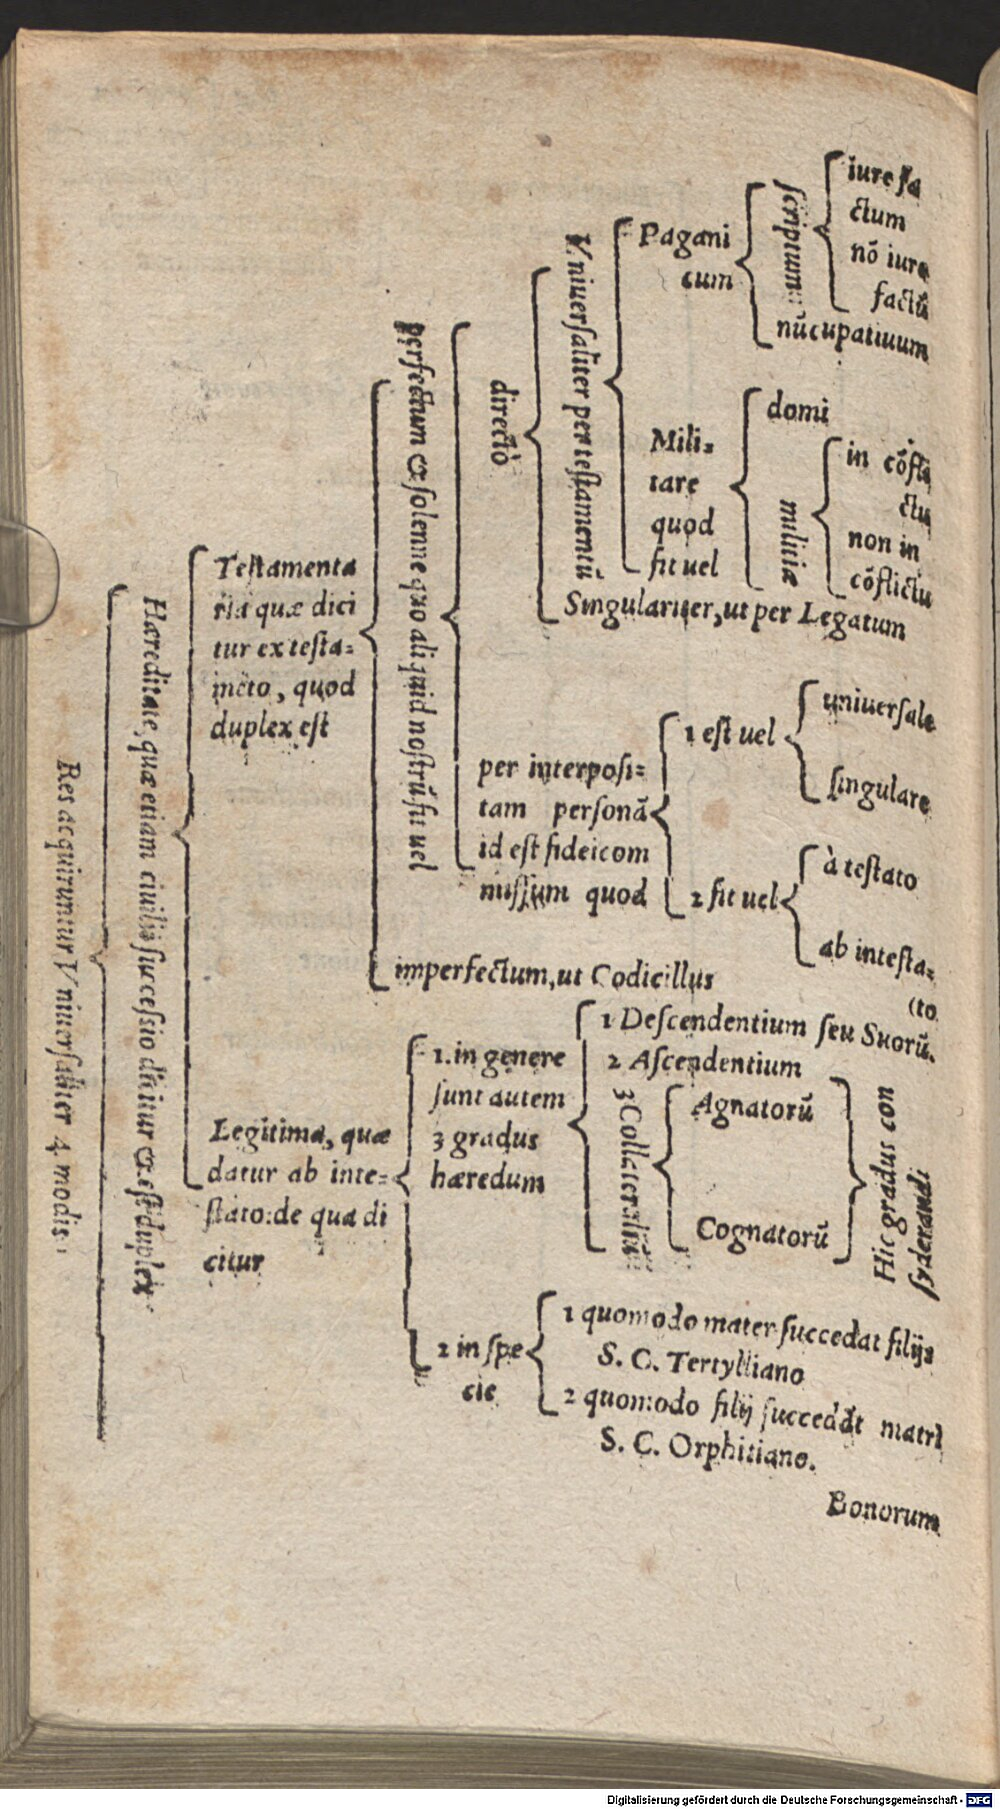 Res acquiruntur Vniuersaliter 4 modis.
Hæreditate, quæ etiam ciuilis successio dicitur & est duplex
Testamenta
ria quæ dici
tur ex testa=
mēto, quod
duplex est
perfectum & solenne quo aliquid nostrū fit uel
directò
Vniuersaliter per testamentū
Pagani
cum
scriptum
iure fa
ctum
nō iure
factū
nūcupatiuum
Mili=
tare
quod
fit uel
domi
militiæ
in cōfli
ctu
non in
cōflictu
Singulariter, ut per Legatum
per interposi=
tam personā
id est fideicom
missum quod
1 est uel
uniuersale
singulare
2 fit uel
à testato
ab intesta=
(to
imperfectum, ut Codicillus
Legitima, quæ
datur ab inte=
stato: de qua di
citur
1. in genere
sunt autem
3 gradus
hæredum
1 Descendentium seu Suorū.
2 Ascendentium
3 Collateraliū
Agnatorū
Cognatorū
Hic gradus con
syderandi
2 in spe
cie
1 quomodo mater succedat filijs
S. C. Tertylliano
2 quomodo filij succedāt matri
S. C. Orphitiano.
Bonorum
Digitalisierung gefördert durch die Deutsche Forschungsgemeinschaft - DFG